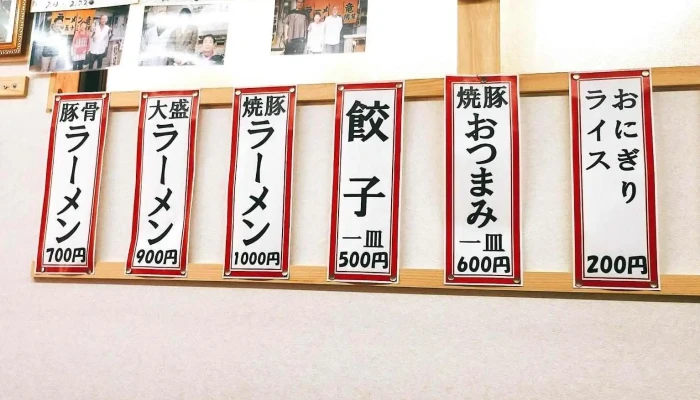 豚骨
ラーメン
700円
大盛
ラーメン
900円
焼豚
ラーメン
1000円
餃子
一皿
500円
焼豚
おつまみ
一皿
600円
おにぎり
ライス
200円